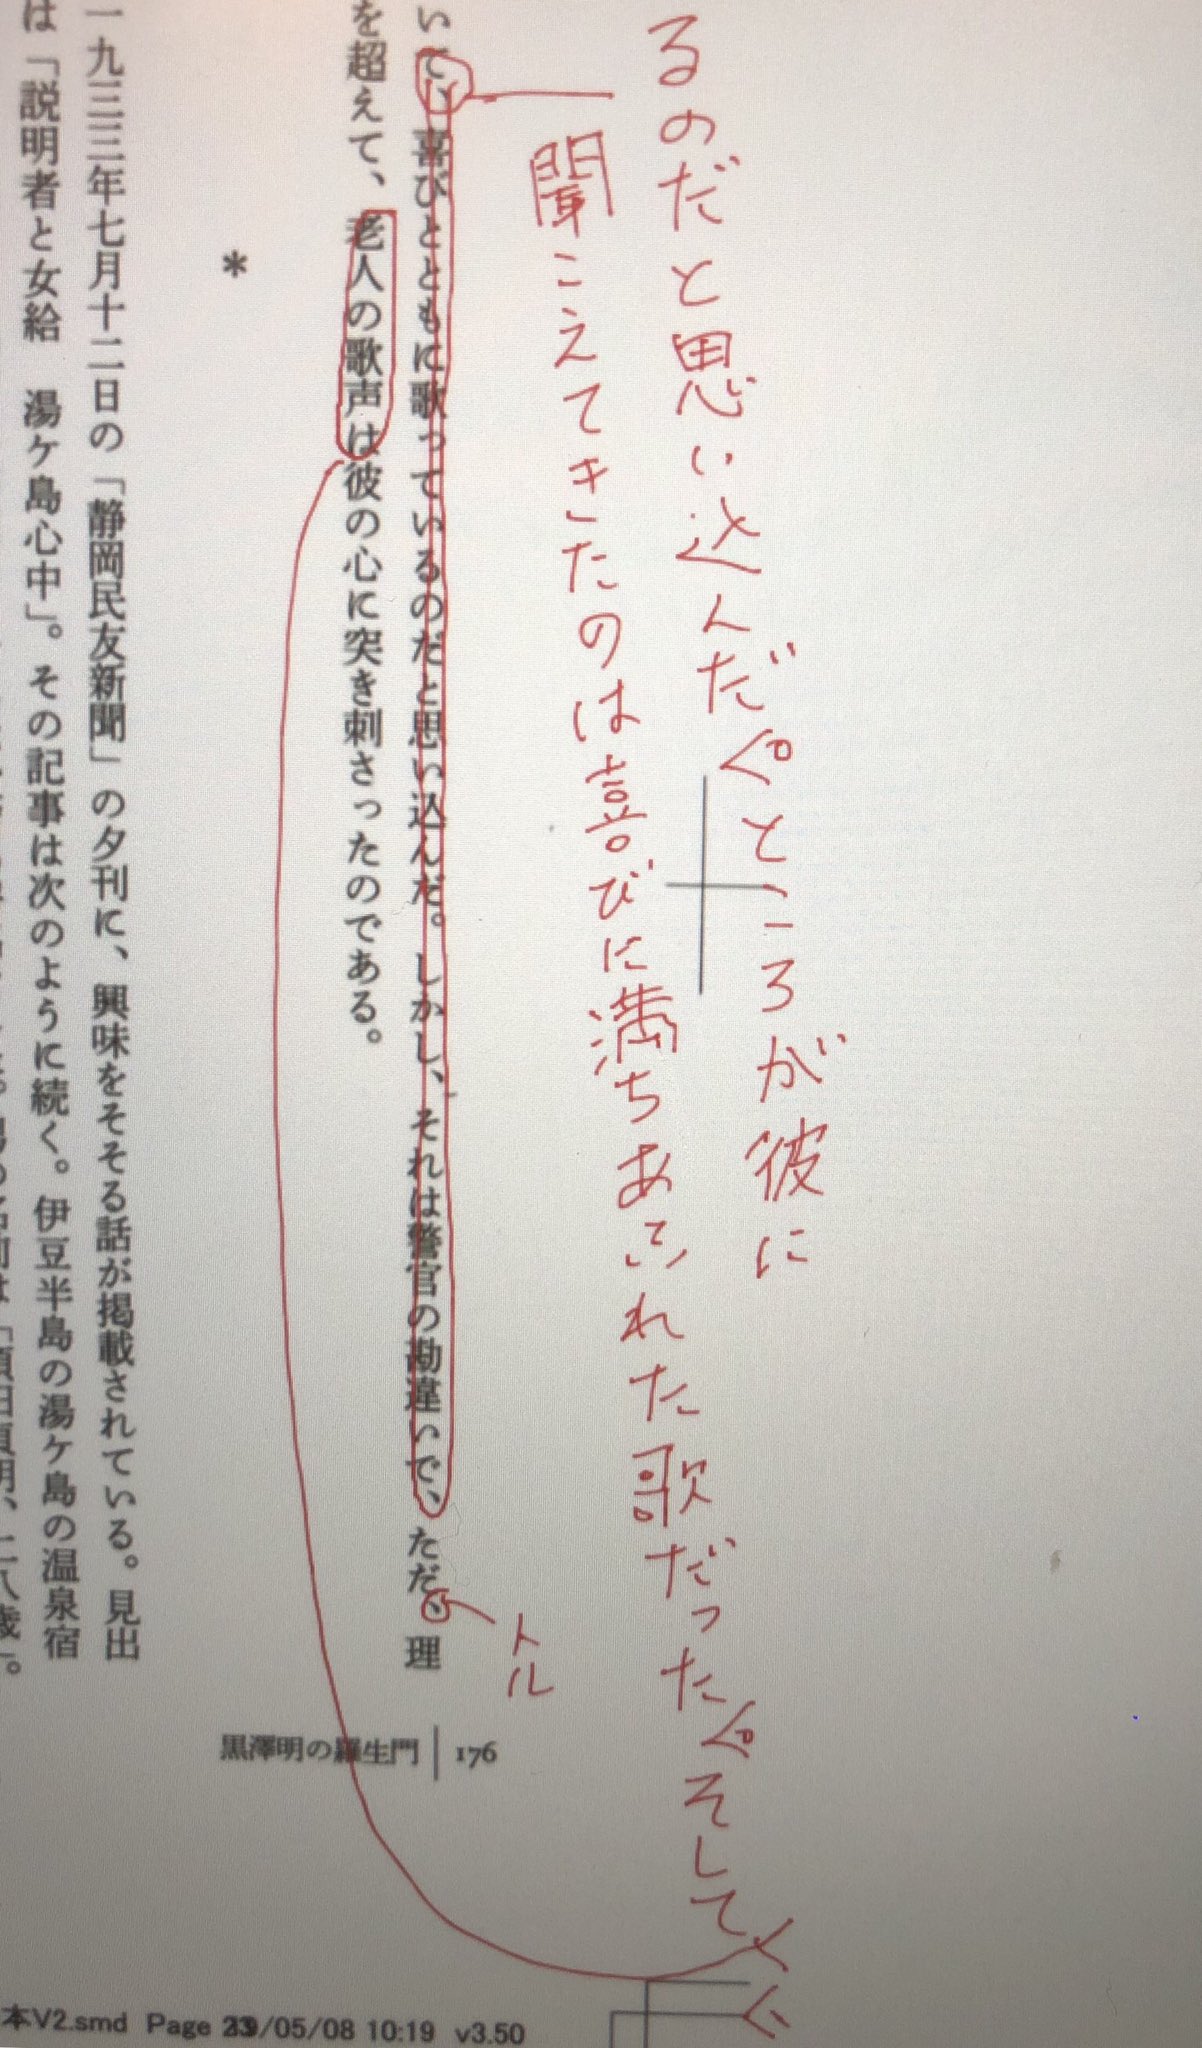 るのだと思い込んだ。ところが彼に
聞こえてきたのは喜びに満ちあふれた歌だった。そして
いて、喜びとともに歌っているのだと思い込んだ。しかし、それは警官の勘違いで、ただ、理
トル
を超えて、老人の歌声は彼の心に突き刺さったのである。
*
一九三三年七月十二日の「静岡民友新聞」の夕刊に、興味をそそる話が掲載されている。見出
は「説明者と女給　湯ケ島心中」。その記事は次のように続く。伊豆半島の湯ケ島の温泉宿
二八歳」。
黒澤明の羅生門 | 176
本V2.smd Page 23
9/05/08 10:19 v3.50